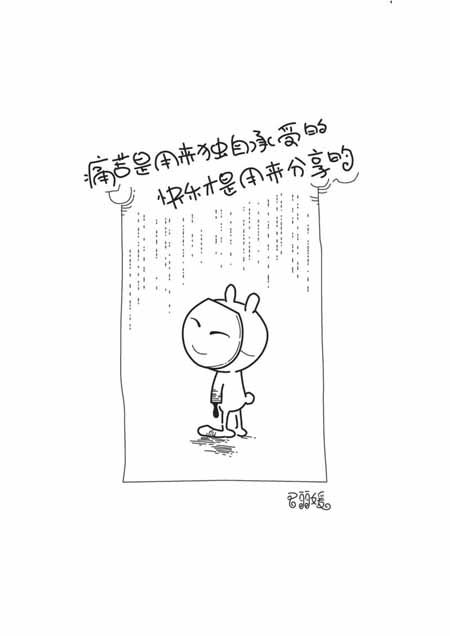 痛苦是用来独自承受的
快乐才是用来分享的